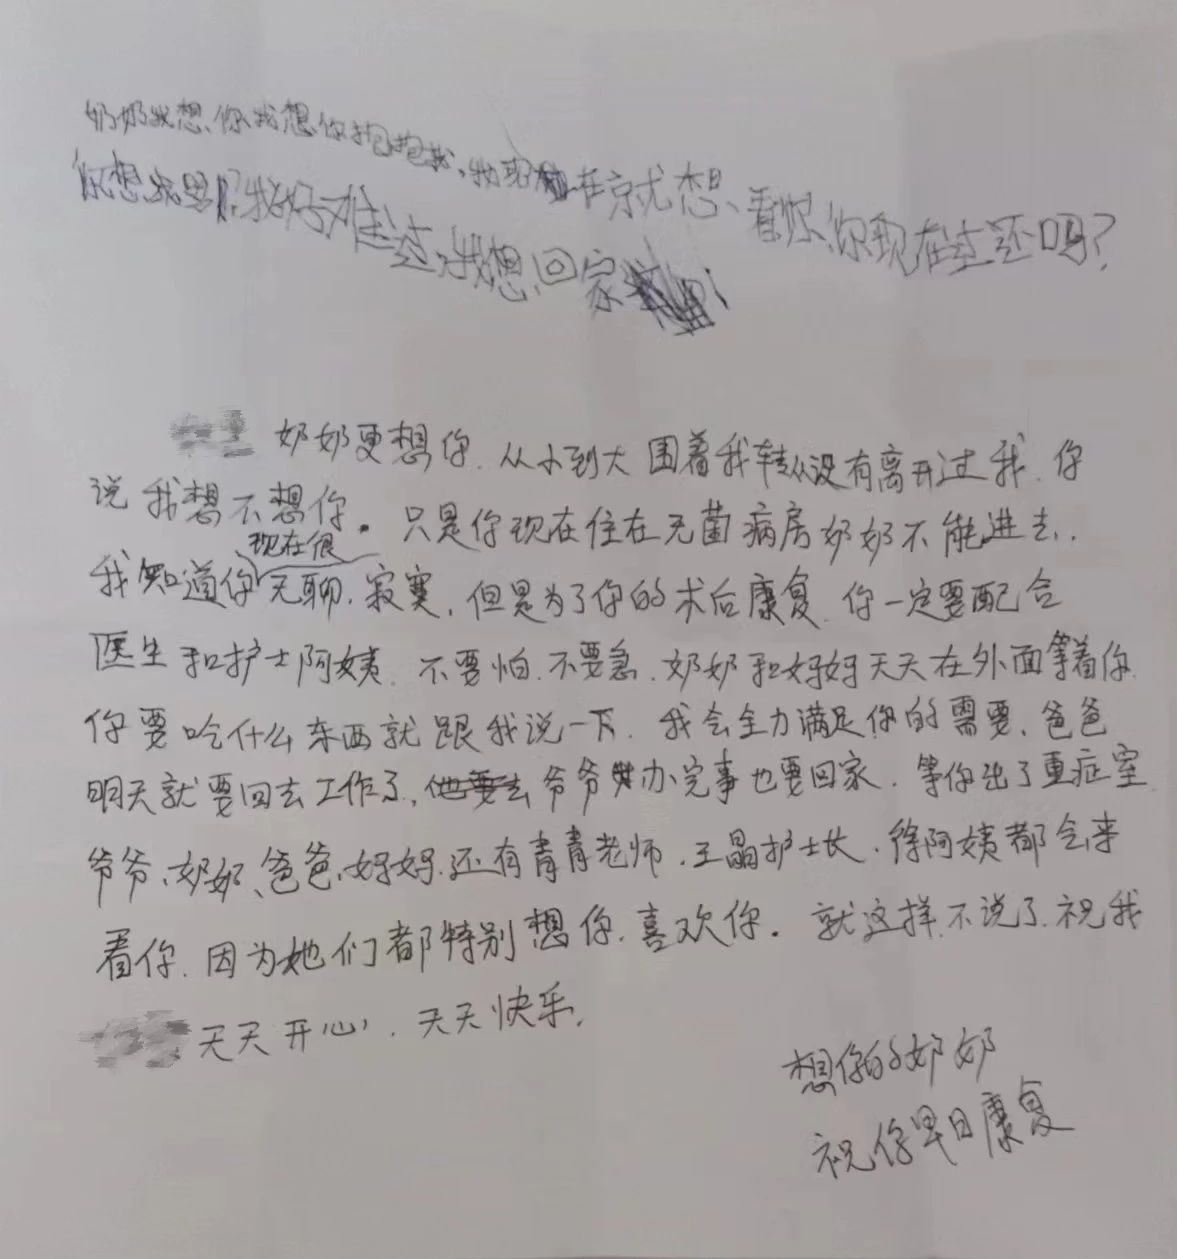 奶奶我想你我想你抱抱我,我现在就想看你,你现在过还吗?
你想我吗?我好难过,我想回家
奶奶更想你.从小到大围着我转从没有离开过我.你
说我想不想你。只是你现在住在无菌病房奶奶不能进去..
我知道你现在很无聊.寂寞,但是为了你的术后康复.你一定要配合
医生和护士阿姨.不要怕.不要急.奶奶和妈妈天天在外面等着你.
你要吃什么东西就跟我说一下.我会全力满足你的需要.爸爸
明天就要回去工作了,爷爷办完事也要回家.等你出了重症室.
爷爷、奶奶、爸爸、妈妈.还有青青老师.王晶护士长.徐阿姨都会来
看你.因为她们都特别想你.喜欢你.就这样.不说了.祝我
天天开心,天天快乐.
想你的奶奶
祝你早日康复